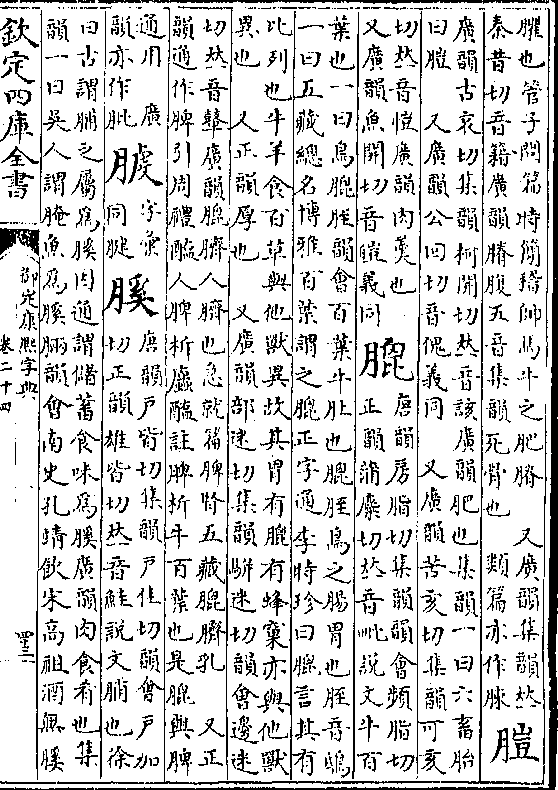 臞也管子問篇時簡稽帥馬牛之肥膌 又廣韻集韻𠀤
秦昔切音籍廣韻膌腹五音集韻死骨也 類篇亦作𦟜
廣韻古哀切集韻柯開切𠀤音該廣韻肥也集韻一曰六畜胎
曰 又廣韻公回切音傀義同 又廣韻苦亥切集韻可亥
切𠀤音愷廣韻肉羮也
又廣韻魚開切音皚義同
膍
唐韻房脂切集韻韻會頻脂切
正韻蒲麋切𠀤音毗說文牛百
葉也一曰鳥膍胵韻會百葉牛肚也膍胵鳥之腸胃也胵音鴟
一曰五藏總名博雅百葉謂之膍正字通李時珍曰膍言其有
比列也牛羊食百草與他獸異故其胃有膍有蜂窠亦與他獸
異也 又正韻厚也 又廣韻部迷切集韻騈迷切韻會邊迷
切𠀤音鼙廣韻膍臍人臍也急就篇脾腎五藏膍臍乳 又正
韻通作脾引周禮醢人脾析蠯醢註脾析牛百葉也是膍與脾
通用 廣
韻亦作肶
字彙
同腱
膎
唐韻戶皆切集韻戶佳切韻會戶加
切正韻雄皆切𠀤音鮭說文脯也徐
曰古謂脯之屬爲膎因通謂儲蓄食味爲膎廣韻肉食肴也集
韻一曰吳人謂腌魚爲膎脼韻會南史孔靖飲宋高祖酒無膎
欽定四庫全書
御定康熙字典
卷二十四